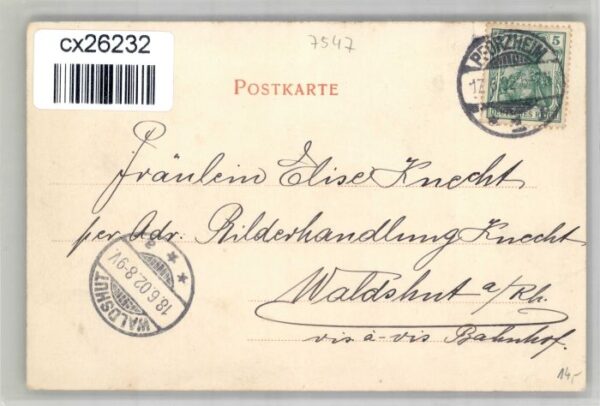 cx26232
7547
5
PFORZHEIM
17.
DEUTSCHES
POSTKARTE
Fräulein Elise Knecht
per Adr. Bilderhandlung Knecht
Waldshut a/Rh.
vis-à-vis Bahnhof.
WALDSHUT
18.6.02.8-9V.
14,-